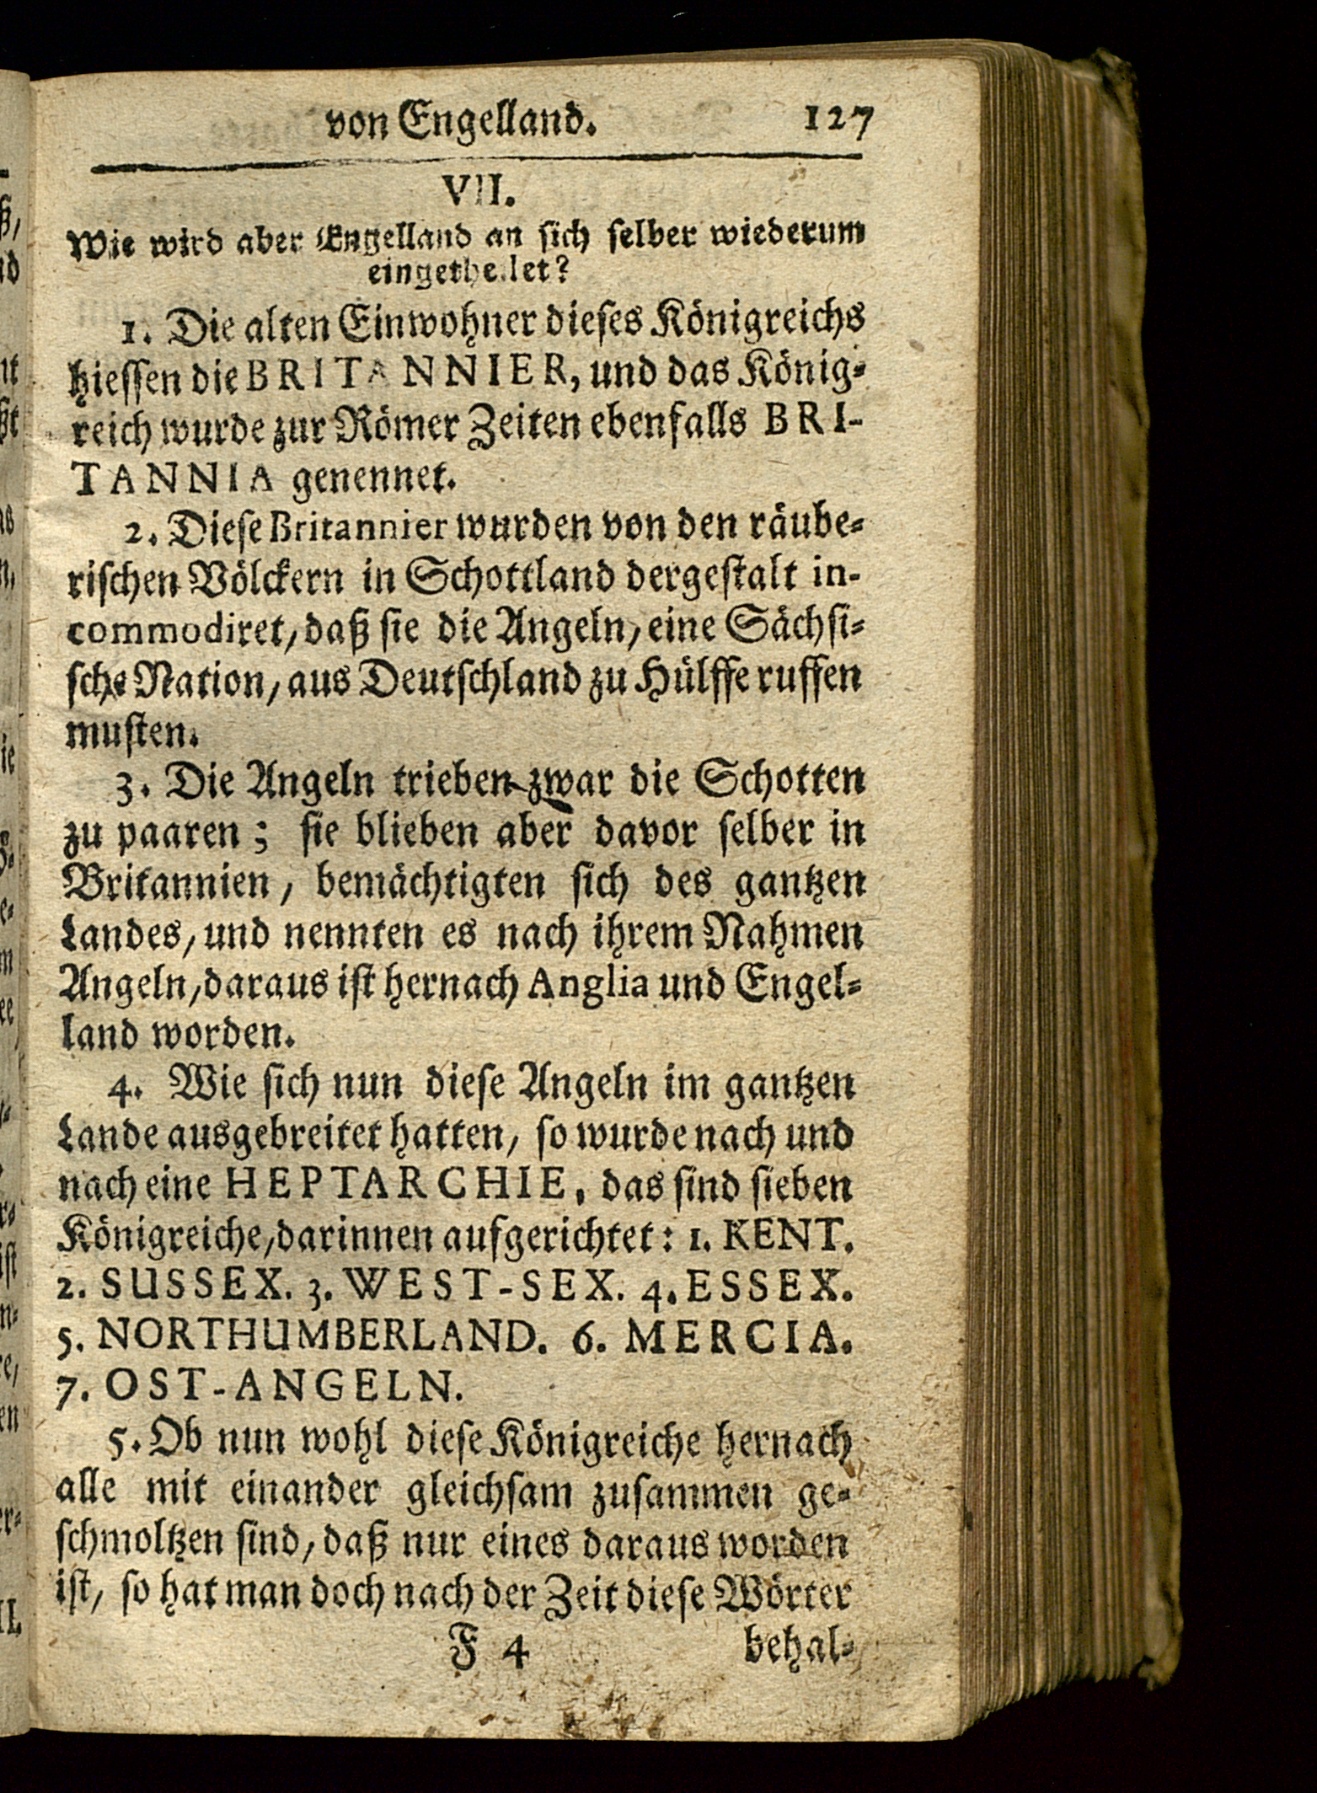 von Engelland. 127
VII.
Wie wird aber Engelland an sich selber wiederum
eingetheilet?
1. Die alten Einwohner dieses Königreichs
hiessen die BRITANNIER, und das König-
reich wurde zur Römer Zeiten ebenfalls BRI-
TANNIA genennet.
2. Diese Britannier wurden von den räube-
rischen Völckern in Schottland dergestalt in-
commodiret, daß sie die Angeln, eine Sächsi-
sche Nation, aus Deutschland zu Hülffe ruffen
musten.
3. Die Angeln trieben zwar die Schotten
zu paaren; sie blieben aber davor selber in
Britannien, bemächtigten sich des gantzen
Landes, und nennten es nach ihrem Nahmen
Angeln, daraus ist hernach Anglia und Engel-
land worden.
4. Wie sich nun diese Angeln im gantzen
Lande ausgebreitet hatten, so wurde nach und
nach eine HEPTARCHIE, das sind sieben
Königreiche, darinnen aufgerichtet: 1. KENT.
2. SUSSEX. 3. WEST-SEX. 4. ESSEX.
5. NORTHUMBERLAND. 6. MERCIA.
7. OST-ANGELN.
5. Ob nun wohl diese Königreiche hernach
alle mit einander gleichsam zusammen ge-
schmoltzen sind, daß nur eines daraus worden
ist, so hat man doch nach der Zeit diese Wörter
F 4 behal-